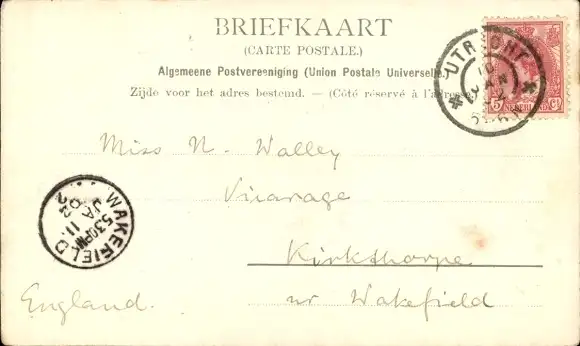 BRIEFKAART
(CARTE POSTALE.)
Algemeene Postvereeniging (Union Postale Universelle).
Zijde voor het adres bestemd. — (Côté réservé à l'adresse)
UTRECHT
10 JAN
5 NEDERLAND Ct
Miss N. Walley
Vicarage
Kirkthorpe
nr Wakefield
England.
WAKEFIELD
530PM
JA 11
02